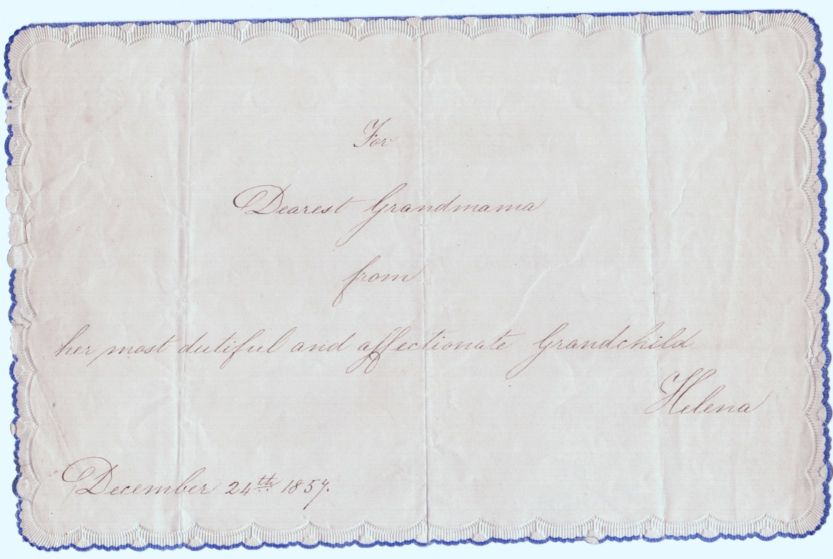 For
Dearest Grandmama
from
her most dutiful and affectionate Grandchild
Helena
December 24th 1857.